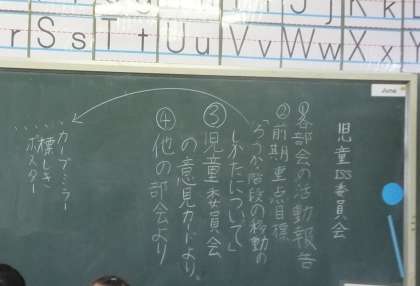 J j K k
r S s T t U u V v W w X x
June
児童ISS委員会
各部会の活動報告
②前期重点目標
「ろうか階段の移動の
しかたについて」
③児童委員会
の意見カードより。
④他の部会より
カーブミラー
標しき
ポスター